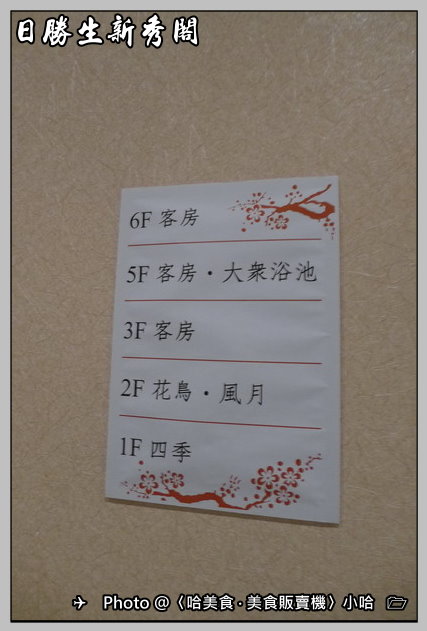 日勝生新秀閣
6F 客房
5F 客房・大衆浴池
3F 客房
2F 花鳥・風月
1F 四季
Photo @〈哈美食・美食販賣機〉小哈